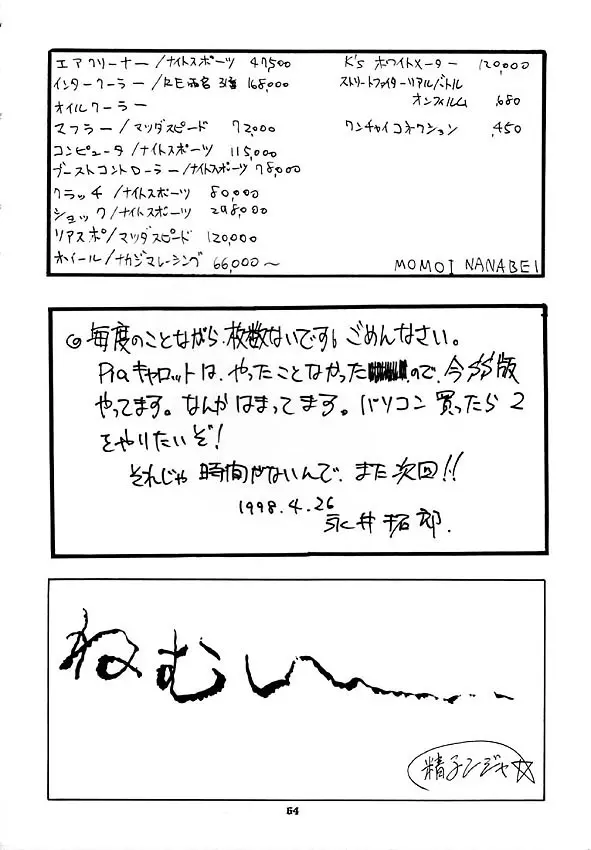 エアクリーナー/ナイトスポーツ 47,500
インタークーラー/RE雨宮 3層 168,000
オイルクーラー
マフラー/マツダスピード 72,000
コンピュータ/ナイトスポーツ 115,000
ブーストコントローラー/ナイトスポーツ 78,000
クラッチ/ナイトスポーツ 80,000
ショック/ナイトスポーツ 298,000
リアスポ/マツダスピード 120,000
ホイール/ナカジマレーシング 66,000〜
K's ホワイトメーター 120,000
ストリートファイターリアルバトル
オンフィルム 680
ワンチャイコネクション 450
MOMOI NANABEI
◎毎度のことながら、枚数ないです。ごめんなさい。
Piaキャロットは、やったことなかったので、今SS版
やってます。なんかはまってます。パソコン買ったら2
をやりたいぞ!
それじゃ時間やないんで、また次回!!
1998.4.26
永井拓郎.
ねむい〜...
精子ンジャ☆
64